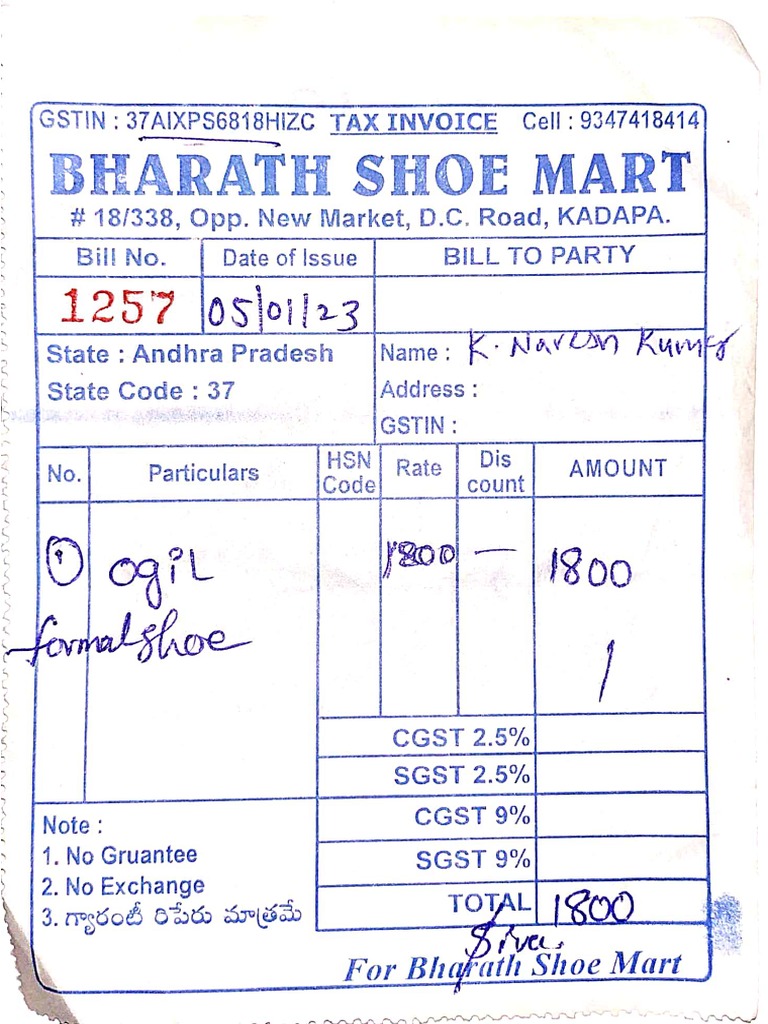 GSTIN : 37AIXPS6818HIZC TAX INVOICE Cell : 9347418414
BHARATH SHOE MART
# 18/338, Opp. New Market, D.C. Road, KADAPA.
Bill No. Date of Issue BILL TO PARTY
1257 05/01/23
State : Andhra Pradesh Name : K. Naresh Kumar
State Code : 37 Address :
GSTIN :
No. Particulars HSN Code Rate Dis count AMOUNT
1 ogiL 1800 — 1800
formal shoe /
CGST 2.5%
SGST 2.5%
CGST 9%
SGST 9%
TOTAL 1800
Note :
1. No Gruantee
2. No Exchange
3. గ్యారంటీ రిపేరు మాత్రమే
Siva.
For Bharath Shoe Mart